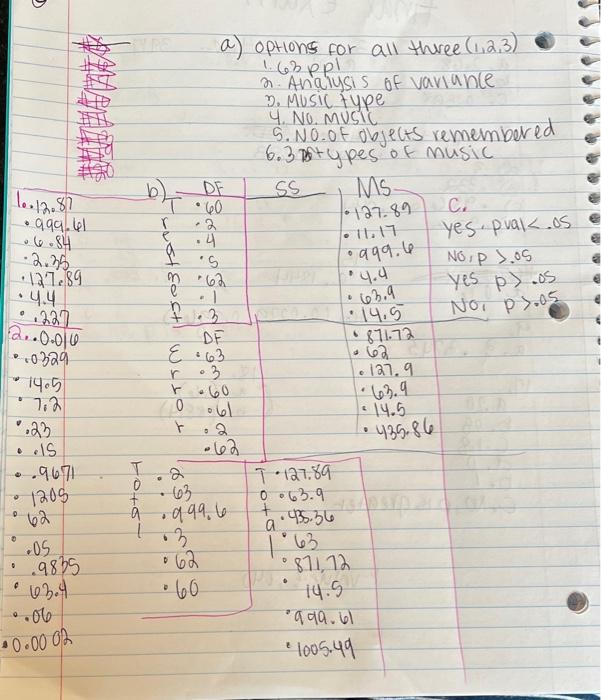 a) options for all three (1,2,3)
1. 63 ppl
2. Analysis of variance
3. Music type
4. No. music
5. No. of objects remembered
6. 3 types of music
b)
DF
SS
MS
C.
Treatment
• 60
• 2
• 4
• 5
• 62
• 1
• 3
• 127.89
• 11.17
• 999.6
• 4.4
• 63.9
• 14.5
• 871.72
• 62
• 127.9
• 63.9
• 14.5
• 435.86
yes. pval < .05
No, p > .05
yes p > .05
No, p > .05
1. • 12.87
• 999.61
• 6.84
• 2.35
• 127.89
• 4.4
• .227
2. • 0.016
• .0329
• 14.5
• 7.2
• .23
• .15
DF
Error
• 63
• 3
• 60
• 61
• 2
• 62
• .9671
• 1205
• 62
• .05
• .9835
• 63.4
• .06
• 0.0002
Total
• 2
• 63
• 999.6
• 3
• 62
• 60
Total
• 127.89
• 63.9
• 435.36
• 63
• 871.72
• 14.5
• 999.61
• 1005.49